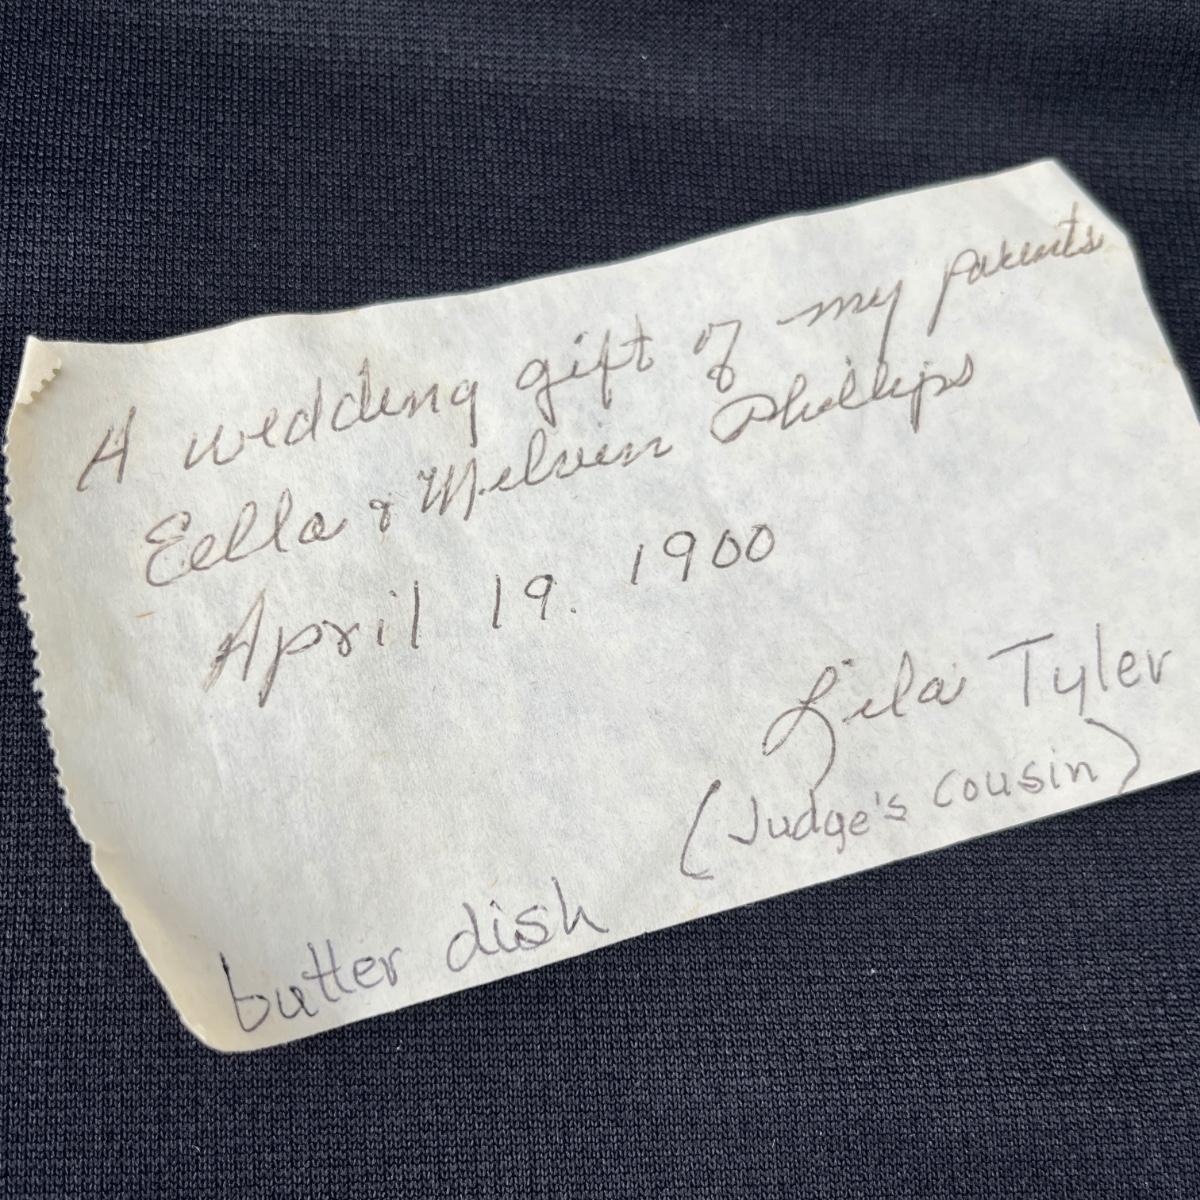 A wedding gift of my parents
Eella & Melvin Phillips
April 19. 1900
Lila Tyler
(Judge's cousin)
butter dish